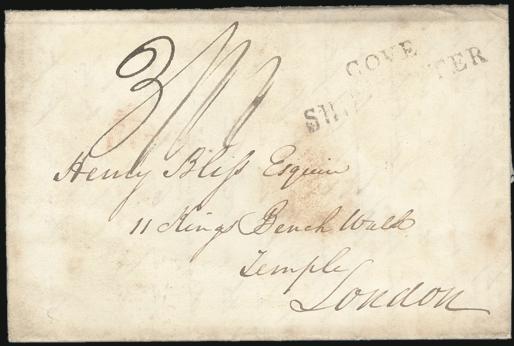 COVE
SHIP LETTER
Henry Bliſs Esquire
11 Kings Bench Walk
Temple
London